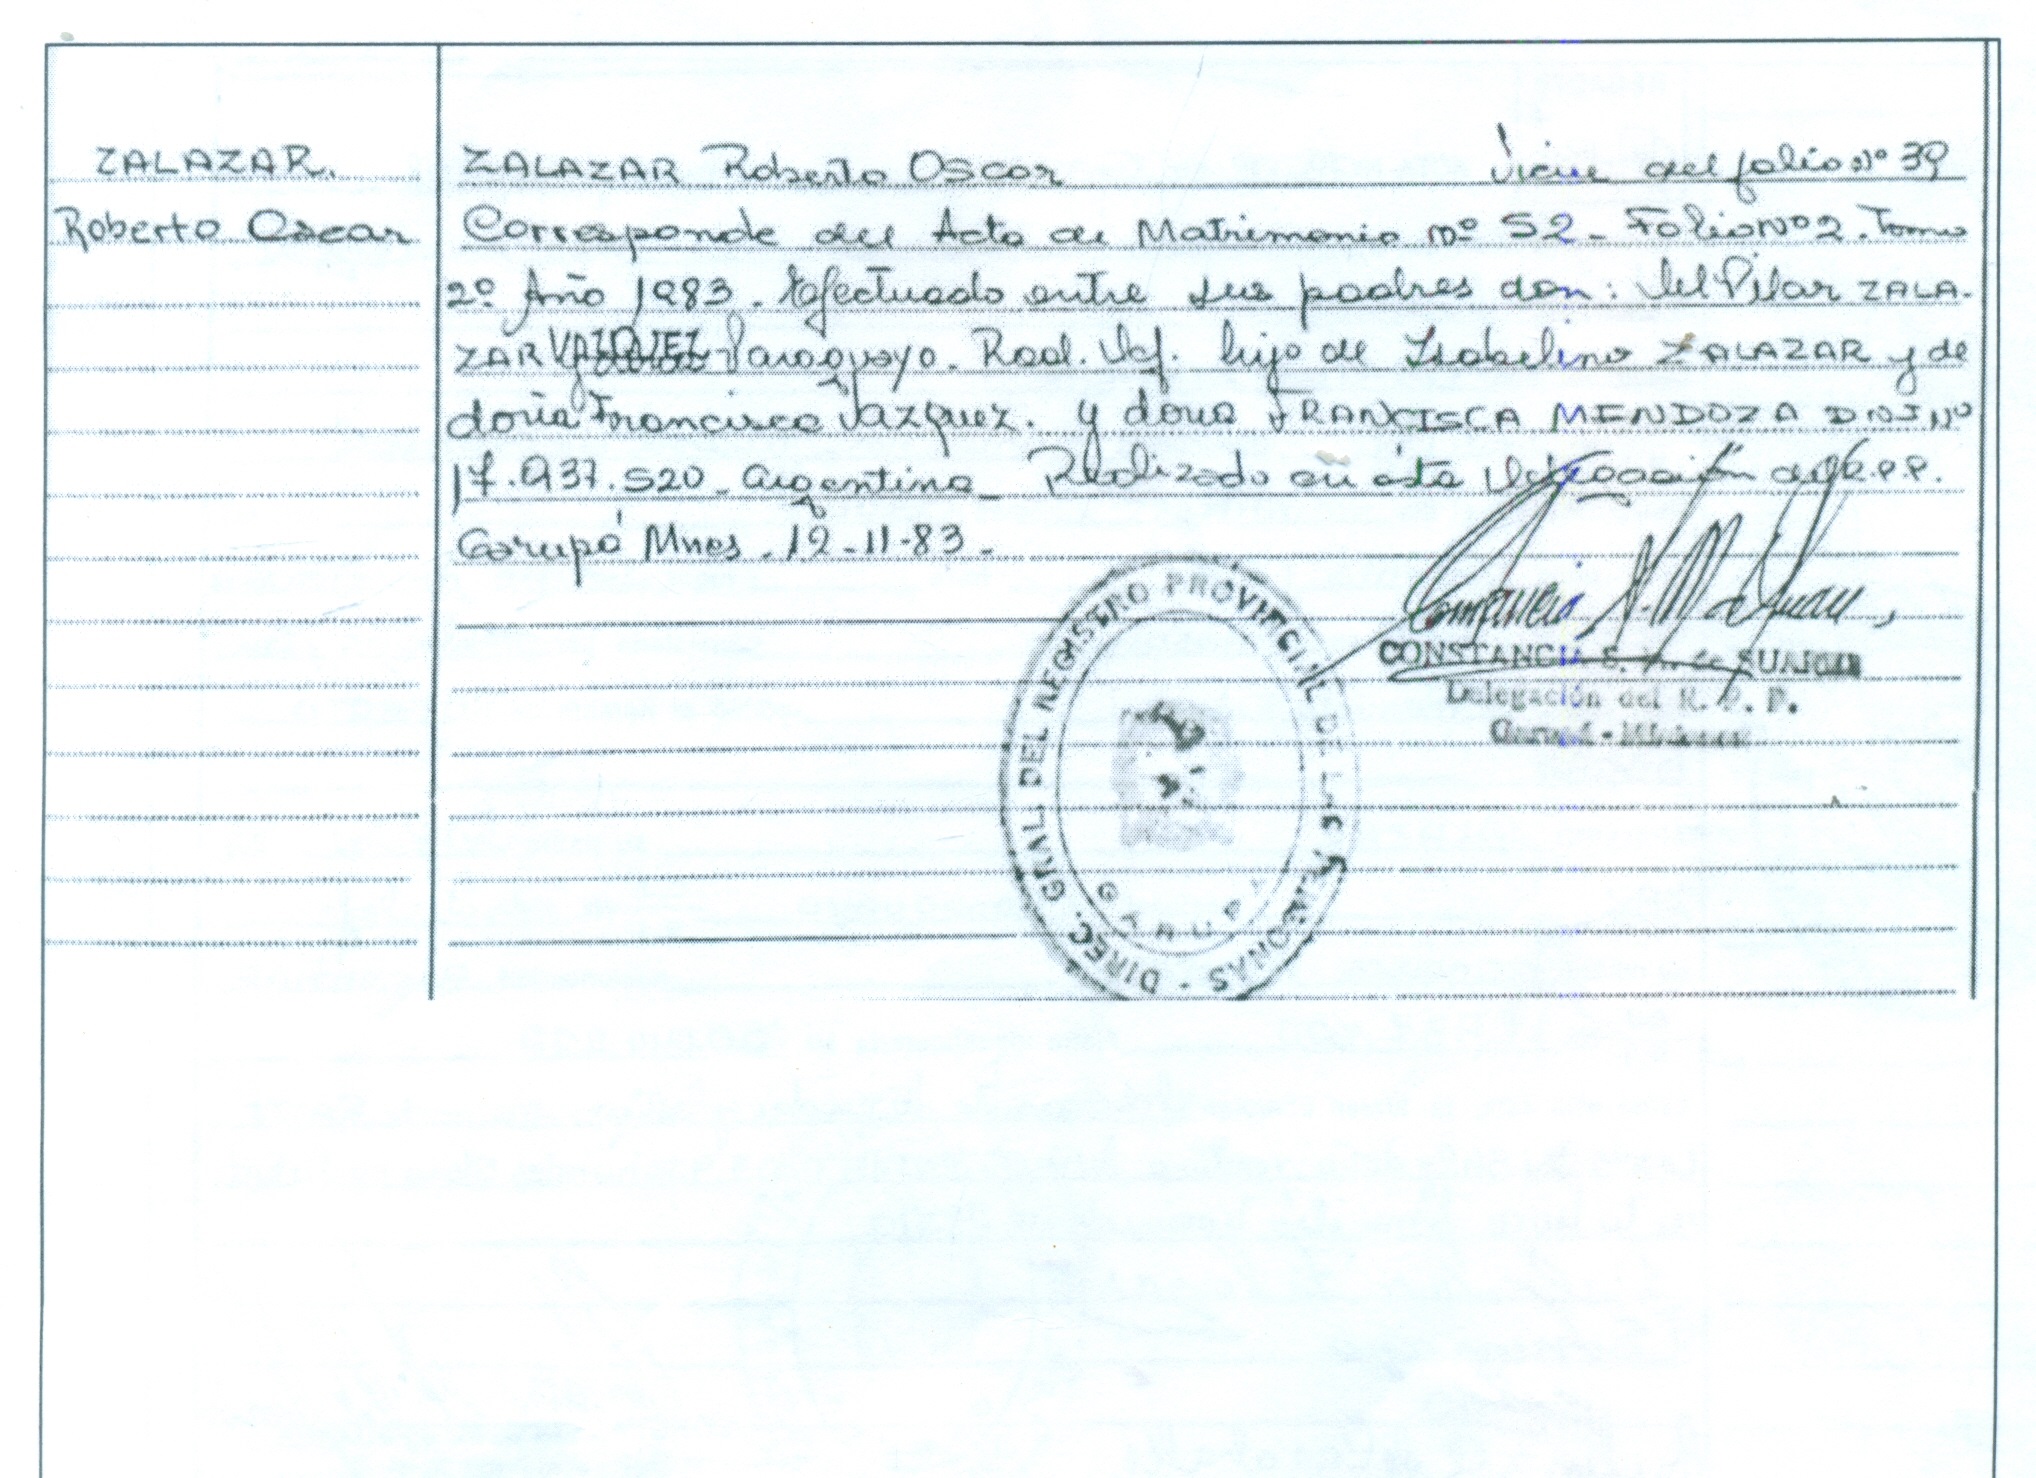 ZALAZAR.
Roberto Oscar
ZALAZAR Roberto Oscar Viene del folio Nº 39
Corresponde del Acta de Matrimonio nº 52 - Folio Nº 2. Tomo
2º Año 1983. Efectuado entre sus padres don: Del Pilar ZALA-
ZAR VAZQUEZ Paraguayo. Rad. Def. hijo de Isabelino ZALAZAR y de
doña Francisca Vazquez. y doña FRANCISCA MENDOZA DNI Nº
17.937.520 - Argentina - Realizado en ésta Delegación del R.P.P.
Garupá Mnes. 12-11-83.-
CONSTANCIA S. de SUAREZ
Delegación del R. P. P.
Garupá - Misiones
DIREC. GRAL. DEL REGISTRO PROVINCIAL DE LAS PERSONAS -
GARUPA